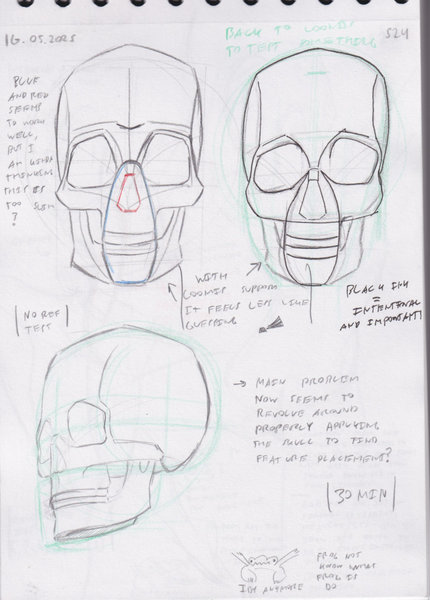 16.05.2025
BACK TO LOOMIS
TO TEST SOMETHING
S24
BLUE
AND RED
SEEMS
TO WORK
WELL,
BUT I
AM KINDA
THINKING
THIS IS
TOO SLIM
?
WITH
LOOMIS SUPPORT
IT FEELS LESS LIKE
GUESSING
BLACK INK
=
INTENTIONAL
AND IMPORTANT!
NO REF
TEST
→ MAIN PROBLEM
NOW SEEMS TO
REVOLVE AROUND
PROPERLY APPLYING
THE SKULL TO FIND
FEATURE PLACEMENT?
30 MIN
FROG NOT
KNOW WHAT
FROG IS
DO
IDK ANYMORE